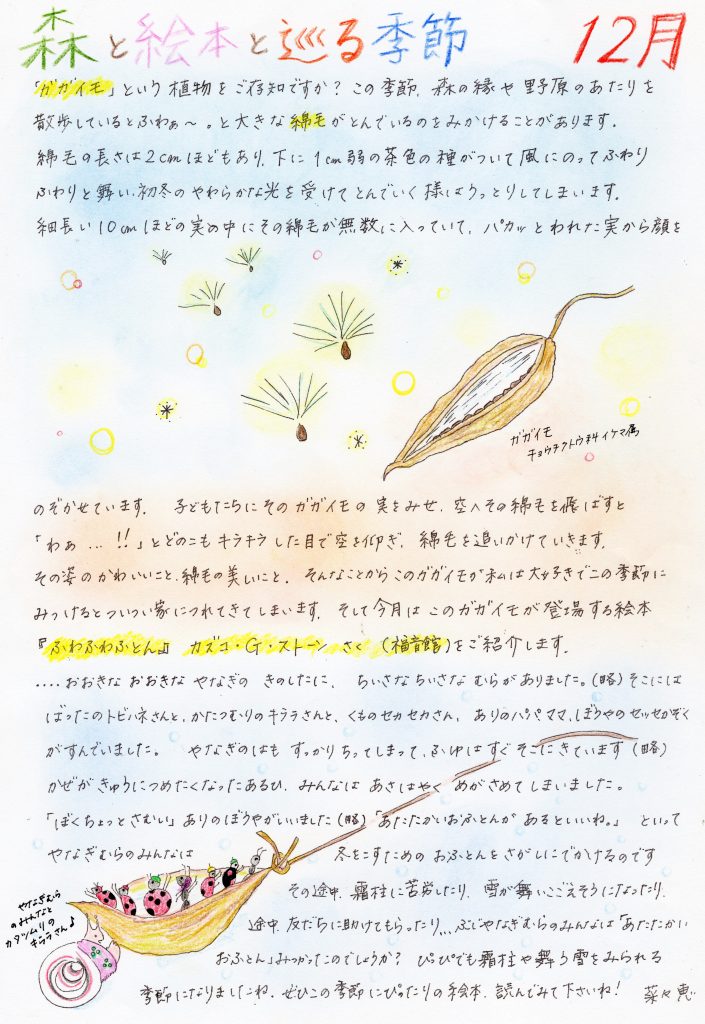 森と絵本と巡る季節 12月
「ガガイモ」という植物をご存知ですか？この季節、森の縁や野原のあたりを
散歩しているとふわぁ〜。と大きな綿毛がとんでいるのをみかけることがあります。
綿毛の長さは2cmほどもあり、下に1cm弱の茶色の種がついて風にのってふわり
ふわりと舞い、初冬のやわらかな光を受けてとんでいく様はうっとりしてしまいます。
細長い10cmほどの実の中にその綿毛が無数に入っていて、パカッとわれた実から顔を
ガガイモ
キョウチクトウ科イケマ属
のぞかせています。子どもたちにそのガガイモの実をみせ、空へその綿毛を飛ばすと
「わぁ...!!」とどのこもキラキラした目で空を仰ぎ、綿毛を追いかけていきます。
その姿のかわいいこと、綿毛の美しいこと。そんなことからこのガガイモが私は大好きでこの季節に
みつけるとついつい家につれてきてしまいます。そして今月はこのガガイモが登場する絵本
『ふわふわふとん』 カズコ・G・ストーン さく (福音館)をご紹介します。
....おおきな おおきな やなぎの きのしたに、ちいさなちいさな むらがありました。(略)そこには
ばったのトビハネさんと、かたつむりのキララさんと、くものセカセカさん、ありのパパ、ママ、ぼうやのセッセかぞく
がすんでいました。 やなぎのはも すっかりちってしまって、ふゆは すぐ そこにきています(略)
かぜが きゅうにつめたくなったあるひ、みんなは あさはやく めがさめてしまいました。
「ぼくちょっとさむい」ありのぼうやがいいました(略)「あたたかいおふとんが あるといいね。」 といって
やなぎむらのみんなは 冬をこすための おふとんをさがしにでかけるのです
その途中、霜柱に苦労したり、雪が舞いこごえそうになったり、
途中 友だちに助けてもらったり...ぶじやなぎむらのみんなは「あたたかい
おふとん」みつかったのでしょうか？ぴっぴでも霜柱や舞う雪をみられる
季節になりましたね。ぜひこの季節にぴったりの絵本、読んでみて下さいね！ 菜々恵
やなぎむら
のみんなと
カタツムリの
キララさん♪